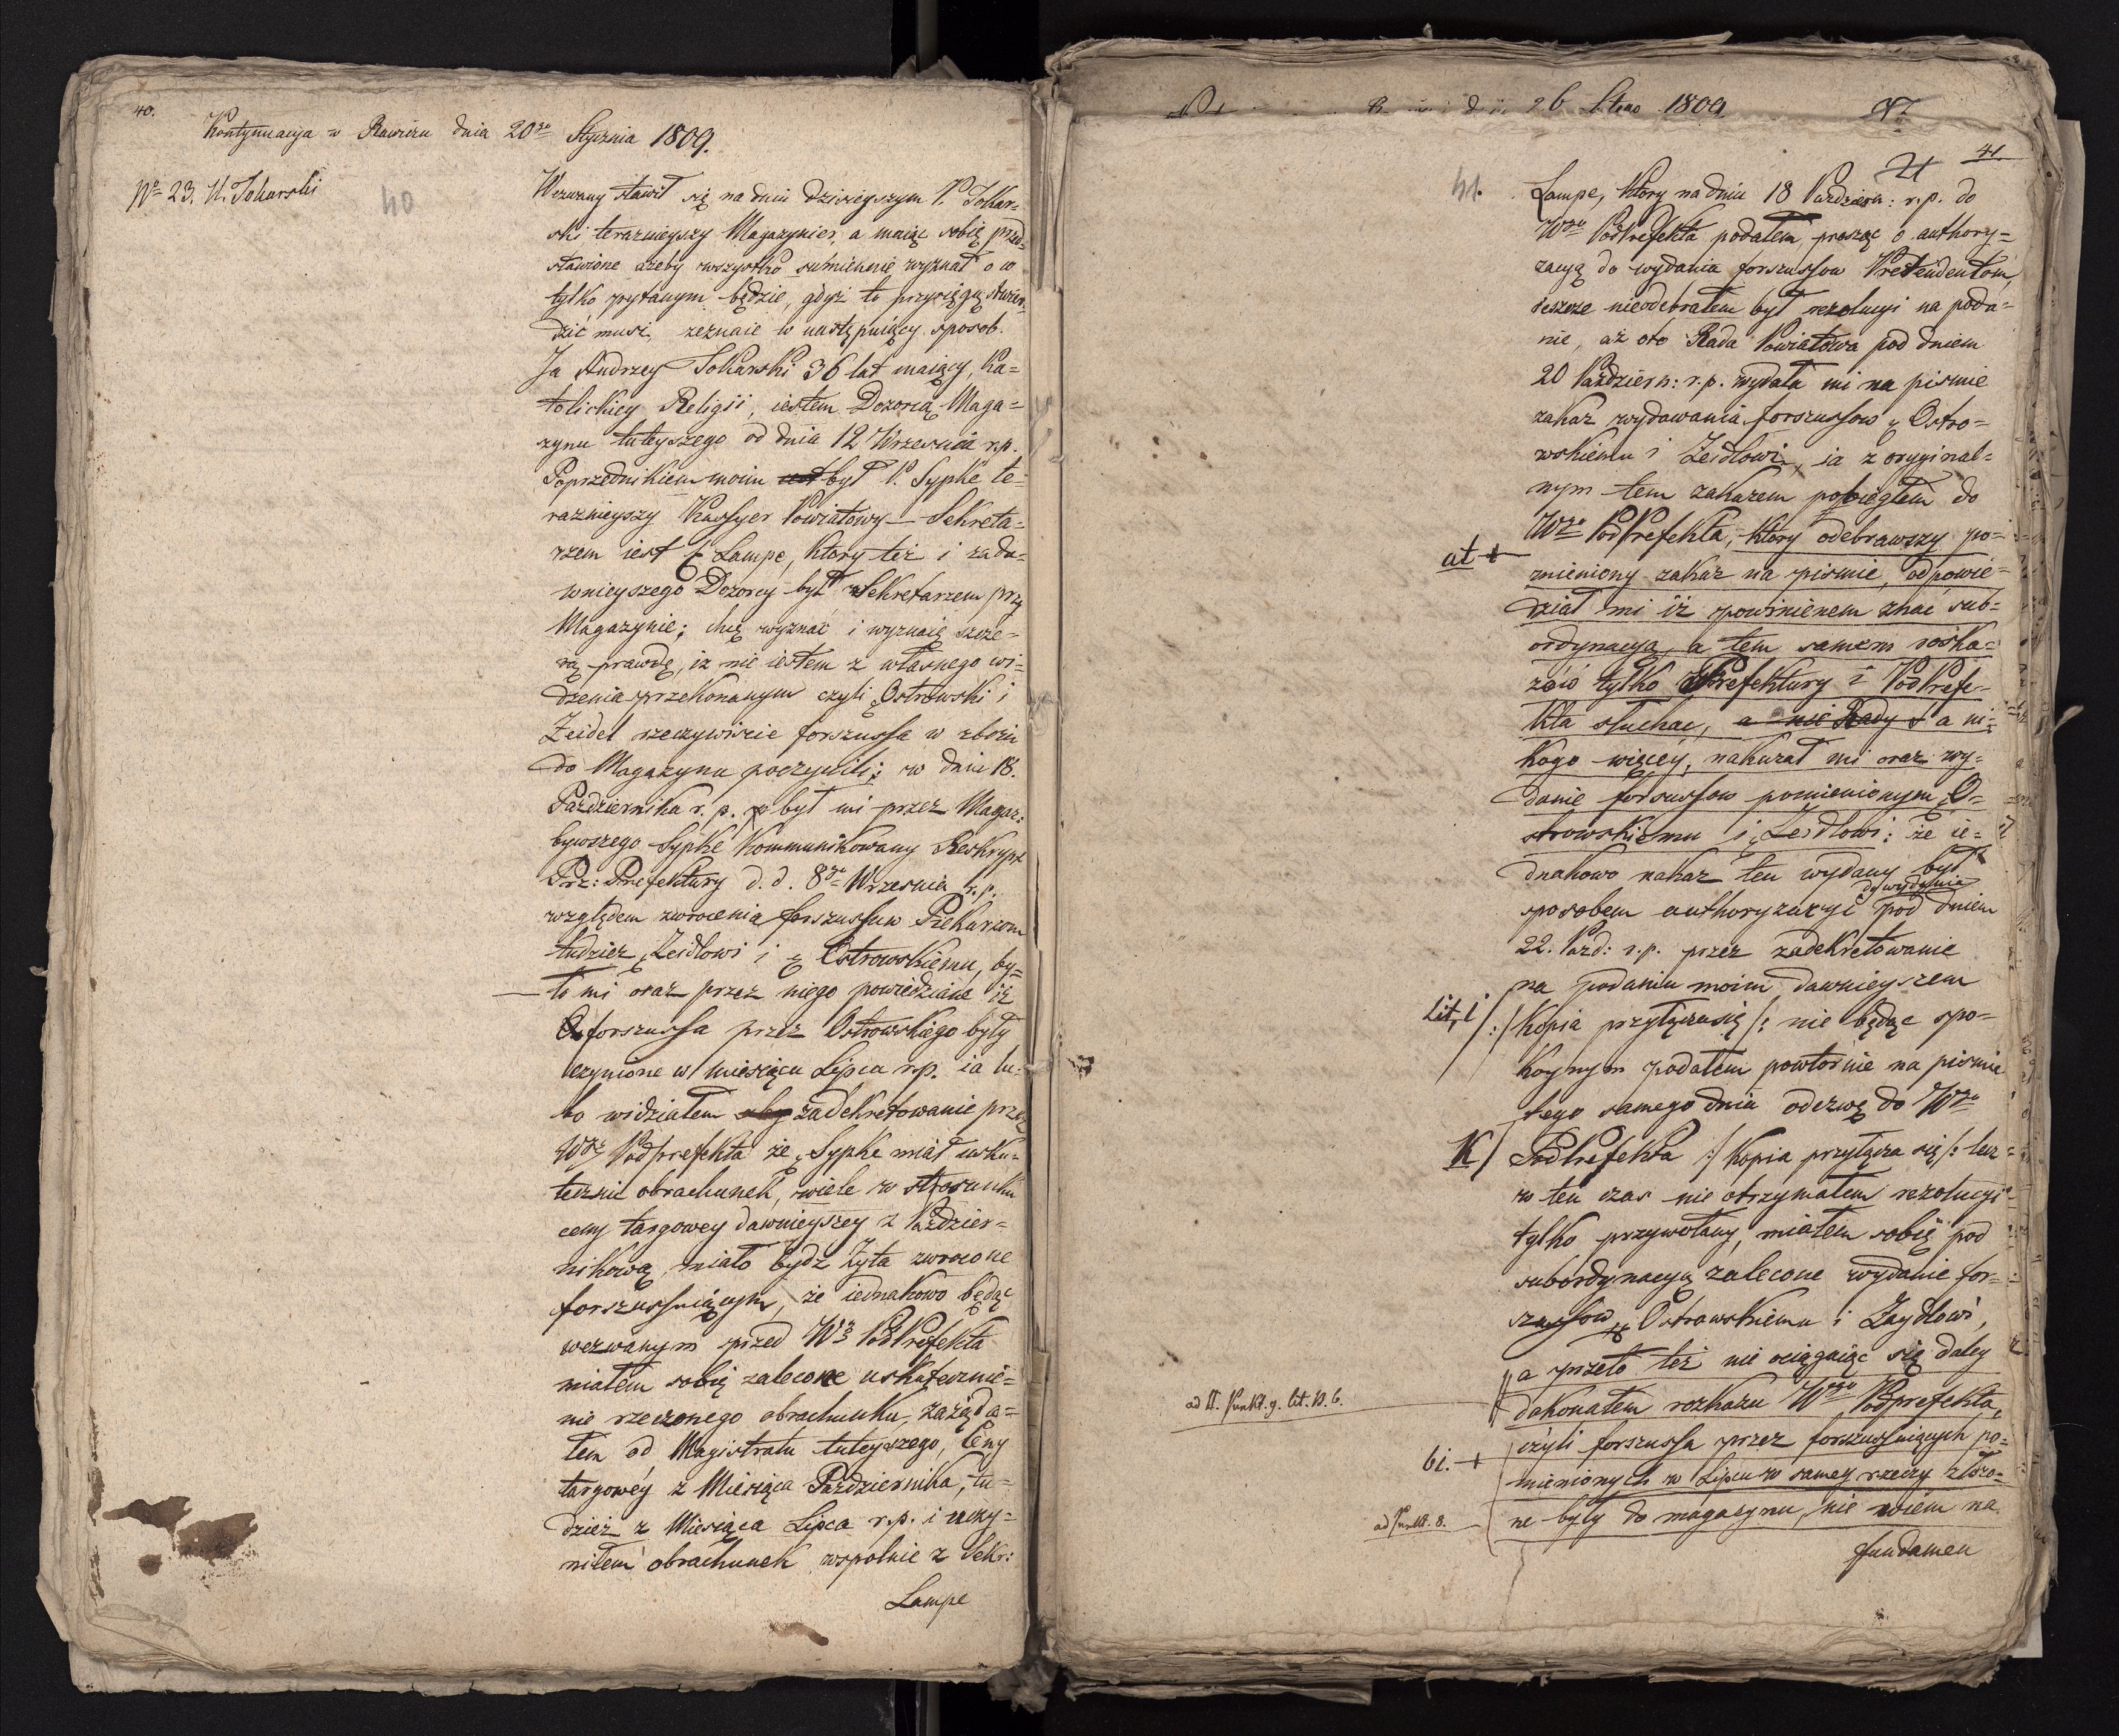 40.
Kontynuacya w Rawiczu dnia 20go Stycznia 1809.
No 23. U. Tokarski
40
Wezwany stawił się na dniu dzisieyszym P. Tokar=
ski teraznieyszy Magazynier, a maiąc sobie przed=
stawione ażeby wszystko sumiennie wyznał o co
tylko zpytanym będzie, gdyż to przysięgą stwier=
dzić musi, zeznaie w następuiący sposob.
Ja Andrzey Tokarski 36 lat maiący, Ka=
tolickiey Religii, iestem Dozorcą Maga=
zynu tuteyszego od dnia 12 Września r.p.
Poprzednikiem moim był P. Sypke te=
raznieyszy Kassyer Powiatowy — Sekreta=
rzem iest Lampe, ktory też i za da=
wnieyszego Dozorcy był Sekretarzem przy
Magazynie; chcę wyznać i wyznaię szcze=
rą prawdę, iż nie iestem z własnego wi=
dzenia przekonanym czyli Ostrowski i
Zeidel rzeczywiście forszussa w zbożu
do Magazynu poczynili; w dniu 18.
Października r. p. był mi przez Magaz:
bywszego Sypke Kommunikowany Reskrypt
Prz: Prefektury d. d. 8go Września r. p.
względem zwrocenia forszussuw Piekarzom
tudzież Zeidlowi i Ostrowskiemu, by=
ło mi oraz przez niego powiedziane iż
forszussa przez Ostrowskiego były
czynione w miesiącu Lipcu r.p. ia lu=
bo widziałem zadekretowanie przez
Wgo Podprefekta że Sypke miał usku=
tecznić obrachunek, wiele w stosunku
ceny targowey dawnieyszey z Paździer=
nikową, miało bydz żyta zwrocone
forszussuiącym, że iednakowo będąc
wezwanym przed Wgo PodPrefekta
miałem sobie zalecone uskutecznie=
nie rzeczonego obrachunku, zażąda=
łem od Magistratu tuteyszego, Ceny
targowéy z Miesiąca Października, tu=
dzież z Miesiąca Lipca r.p. i uczy=
niłem obrachunek wspolnie z Sekr:
Lampe
26 1809.
21
41.
41.
Lampe, ktory na dniu 18 Październ: r.p. do
Wgo PodPrefekta podałem, prosząc o authory=
zacyą do wydania forszussow Pretendentom,
ieszcze nieodebrałem był rezolucyi na poda=
nie, aż oto Rada Powiatowa pod dniem
20 Październ: r.p. wydała mi na pismie
zakaz wydawania forszussow Ostro=
wskiemu i Zeidlowi, ia z oryginal=
nym tem zakazem pobiegłem do
Wgo PodPrefekta, ktory odebrawszy po=
at +
mieniony zakaz na pismie, odpowie=
dział mi iż powinienem znać sub=
ordynacyą, a tem samem roska=
zów tylko Prefektury i PodPrefe=
kta słuchać, a nie Rady a ni=
kogo więcéy, nakazał mi oraz wy=
danie forszussow pomienionym O=
strowskiemu i Zeidlowi: że ie=
dnakowo nakaz ten wydany był
do wydania
sposobem authoryzacyi pod dniem
22. Pazd: r.p. przez zadekretowanie
na podaniu moim dawnieyszem
Lit. i
/:/ kopia przyłącza się /: nie będąc spo=
koynym podałem powtornie na pismie
tego samego dnia odezwę do Wgo
K/
PodPrefekta :/ kopia przyłącza się /: lecz
w ten czas nie otrzymałem rezolucyi
tylko przywołany, miałem sobie pod
subordynacyą zalecone wydanie for=
szussow Ostrowskiemu i Zaydlowi,
a przeto też nie ociągaiąc się daley
ad II. Punkt. g. lit. B. 6.
dokonałem rozkazu Wgo Podprefekta,
bi. +
czyli forszussa przez forszussuiących po=
mienionych w Lipcu w samey rzeczy złożo=
ad Punkt. 8.
ne były do magazynu, nie wiem na
fundamen